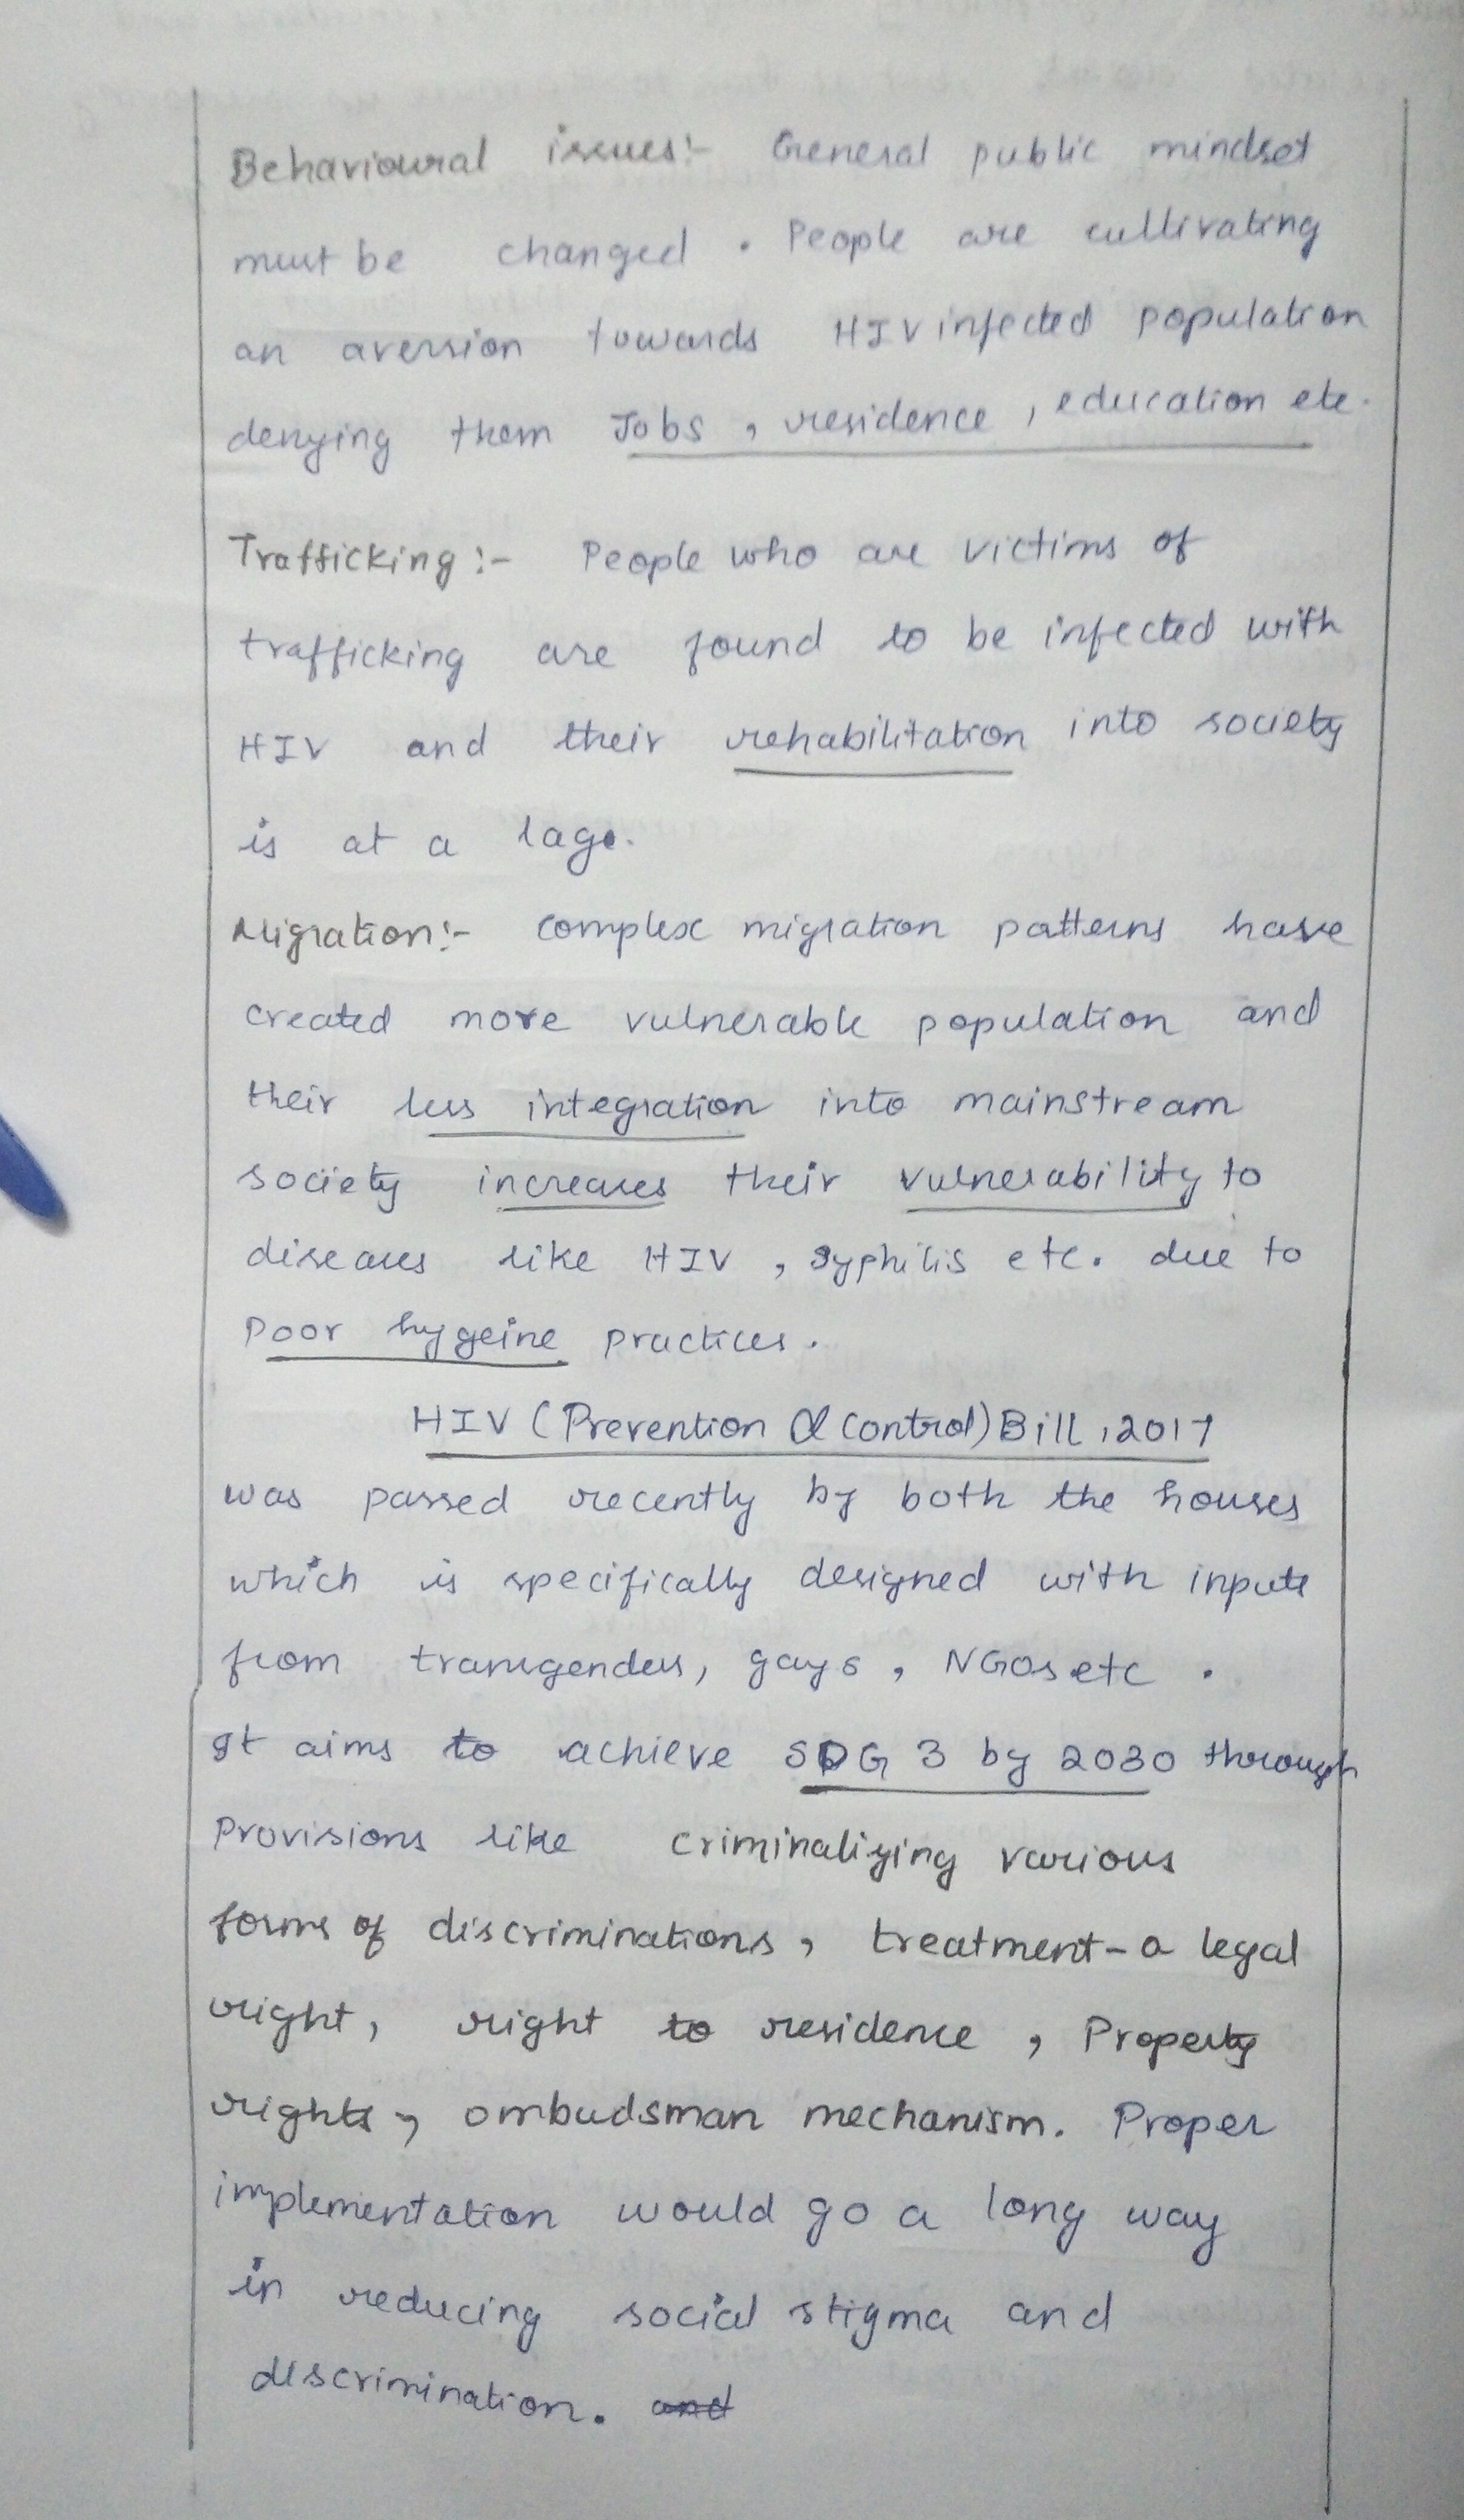 Behavioural issues:- General public mindset
must be changed. People are cultivating
an aversion towards HIV infected population
denying them Jobs, residence, education etc.
Trafficking:- People who are victims of
trafficking are found to be infected with
HIV and their rehabilitation into society
is at a lag.
Migration:- Complex migration patterns have
created more vulnerable population and
their less integration into mainstream
society increases their vulnerability to
diseases like HIV, syphilis etc. due to
poor hygeine practices.
HIV (Prevention & Control) Bill, 2017
was passed recently by both the houses
which is specifically designed with inputs
from transgenders, gays, NGOs etc.
It aims to achieve SDG 3 by 2030 through
Provisions like criminalizing various
forms of discriminations, treatment - a legal
right, right to residence, Property
rights, ombudsman mechanism. Proper
implementation would go a long way
in reducing social stigma and
discrimination. and